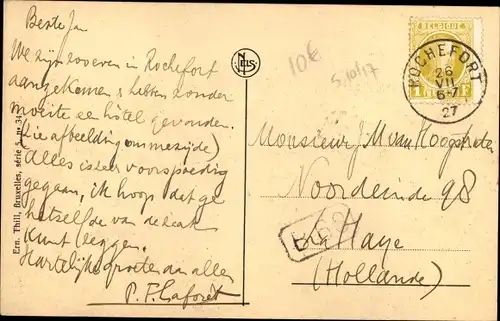 Beste Jan
We zijn zooveren in Rochefort
aangekomen & hebben zonder
moeite een hôtel gevonden.
(zie afbeelding ommezijde)
Alles is zeer voorspoedig
gegaan, ik hoop dat ge
hetzelfde van de zaak
kunt zeggen.
Hartelijke groeten aan allen
P. F. Laforet
Ern. Thill, Bruxelles, série 5, nr. 34
NELS
10€
5.10/17
BELGIQUE
1 F
ROCHEFORT
26
VII
6-7
27
Monsieur J M van Hoogstraten
Noordeinde 98
La Haye
(Hollande)